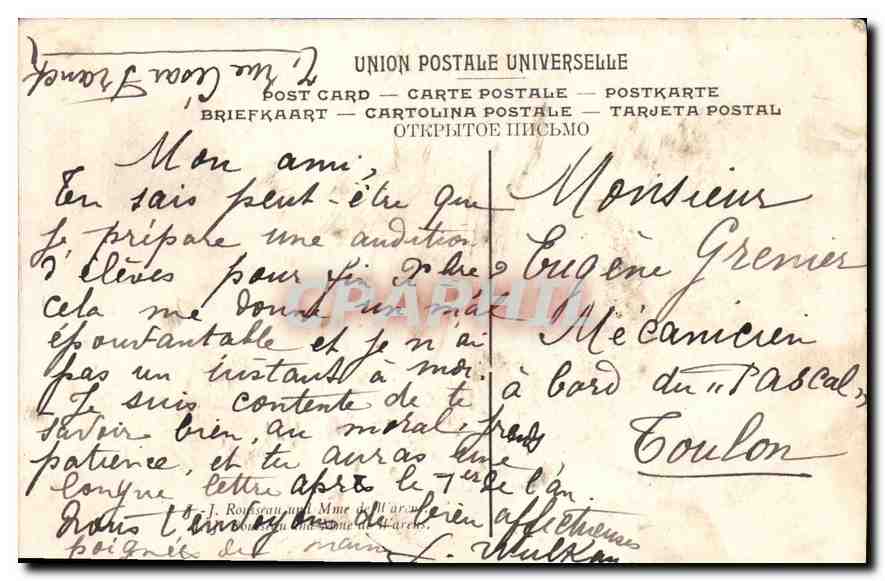 7, rue César Franck
UNION POSTALE UNIVERSELLE
POST CARD — CARTE POSTALE — POSTKARTE
BRIEFKAART — CARTOLINA POSTALE — TARJETA POSTAL
ОТКРЫТОЕ ПИСЬМО
Mon ami,
Tu sais peut-être que
je prépare une audition
d'élèves pour fin Xbre,
cela me donne un mal
épouvantable et je n'ai
pas un instant à moi.
Je suis contente de te
savoir bien, au moral, prends
patience, et tu auras une
longue lettre après le 1er de l'an.
J. Rousseau und Mme de Warens.
Rousseau and Mme de Warens.
Nous t'envoyons de bien affectueuses
poignées de main
Monsieur
Eugène Grenier
Mécanicien
à bord du "Pascal"
Toulon
CPAPHIL